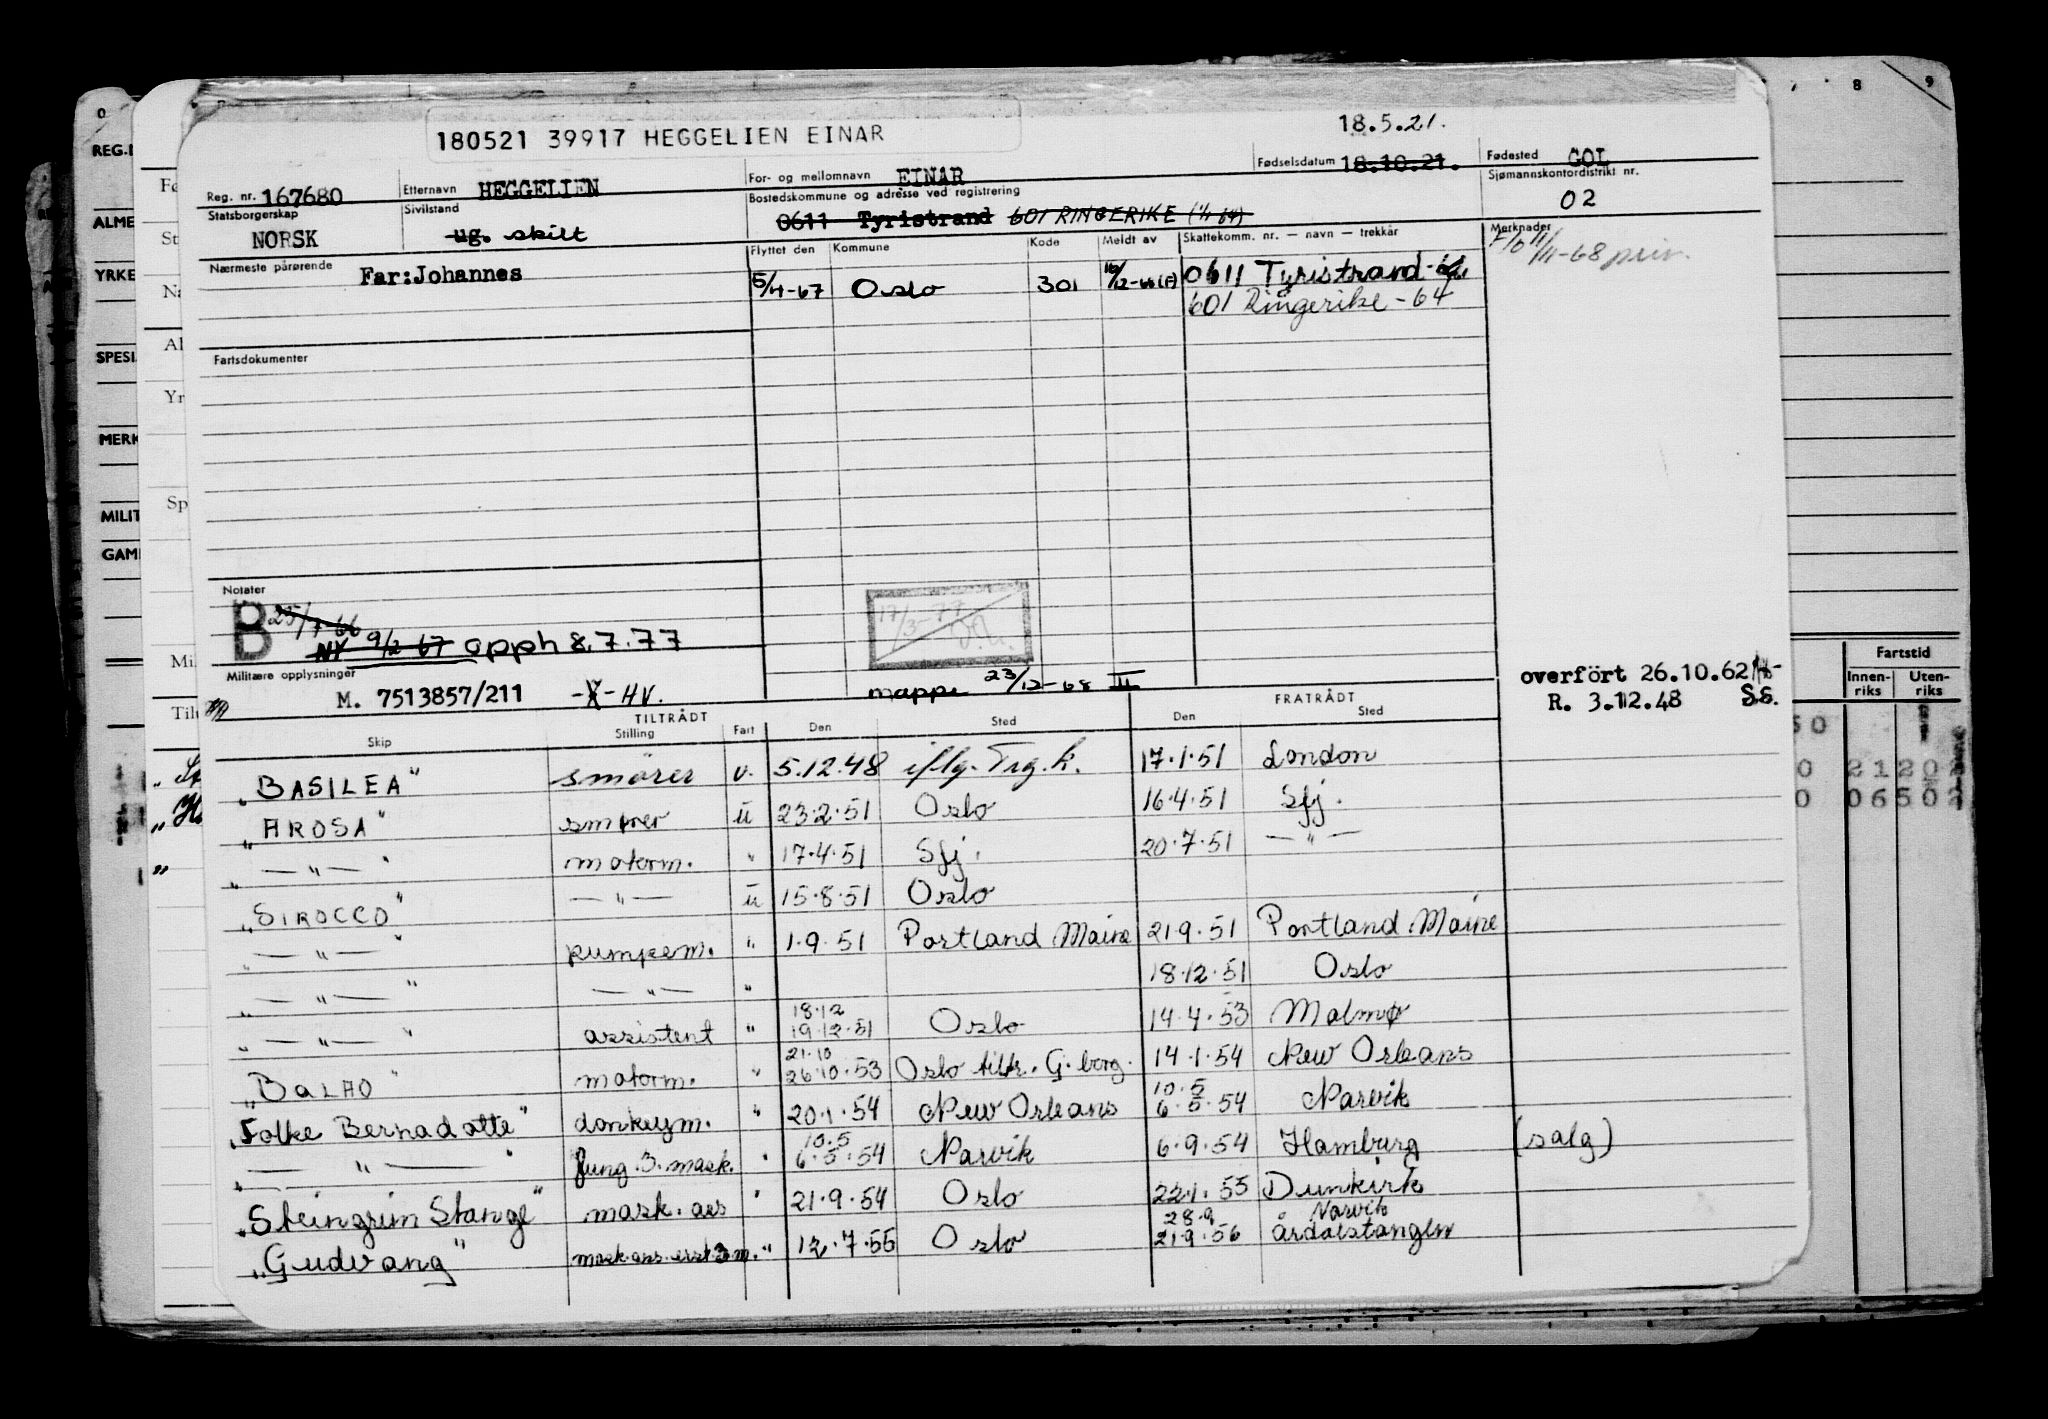 0 8 9
180521 39917 HEGGELIEN EINAR
18.5.21.
REG.
Reg. nr. 167680 Etternavn HEGGELIEN For- og mellomnavn EINAR Fødselsdatum 18.10.21. Fødested GOL
Statsborgerskap NORSK Sivilstand ug. skilt Bostedskommune og adresse ved registrering 0611 Tyristrand 601 RINGERIKE (1/1 64) Sjømannskontordistrikt nr. 02
ALME
YRKE
Nærmeste pårørende Far:Johannes Flyttet den Kommune Kode Meldt av Skattekomm. nr. — navn — trekkår Merknader
5/4-67 Oslo 301 0611 Tyristrand
601 Ringerike - 64
Fartsdokumenter
SPESI
MERK
MILIT
GAM
Notater
B 25/7-66
NY 9/2 67 opph 8.7.77
17/3-77
Militære opplysninger M. 7513857/211 -X- HV.
mappe 23/12-68 II
overfört 26.10.62
R. 3.12.48 S.S.
Fartstid
Innen-riks Uten-riks
TILTRÅDT FRATRÅDT
Skip Stilling Fart Den Sted Den Sted
„BASILEA" smörer u. 5.12.48 iflg. Trg.k. 17.1.51 London
„AROSA" smører u 23.2.51 Oslo 16.4.51 Sfj.
„ — " — " motorm. " 17.4.51 Sfj. 20.7.51 — " —
„SIROCCO" — " — u 15.8.51 Oslo
„ — " — " pumpem. " 1.9.51 Portland Maine 21.9.51 Portland. Maine
„ — " — " — " — " 18.12.51 Oslo
„ — " — " assistent " 18.12 19.12.51 Oslo 14.4.53 Malmø
„BALAO" motorm. " 21.10 26.10.53 Oslo tiltr. G.borg. 14.1.54 New Orleans
„Folke Bernadotte" donkeym. " 20.1.54 New Orleans 10.5 6.5.54 Narvik
„ — " — " fung. 3. mask. " 10.5 6.5.54 Narvik 6.9.54 Hamburg (salg)
„Steingrim Stange" mask. ass " 21.9.54 Oslo 22.1.55 Dunkirk
„Gudvang" mask.ass.erst.3 m. " 12.7.55 Oslo 28.9 21.9.56 Narvik Årdalstangen